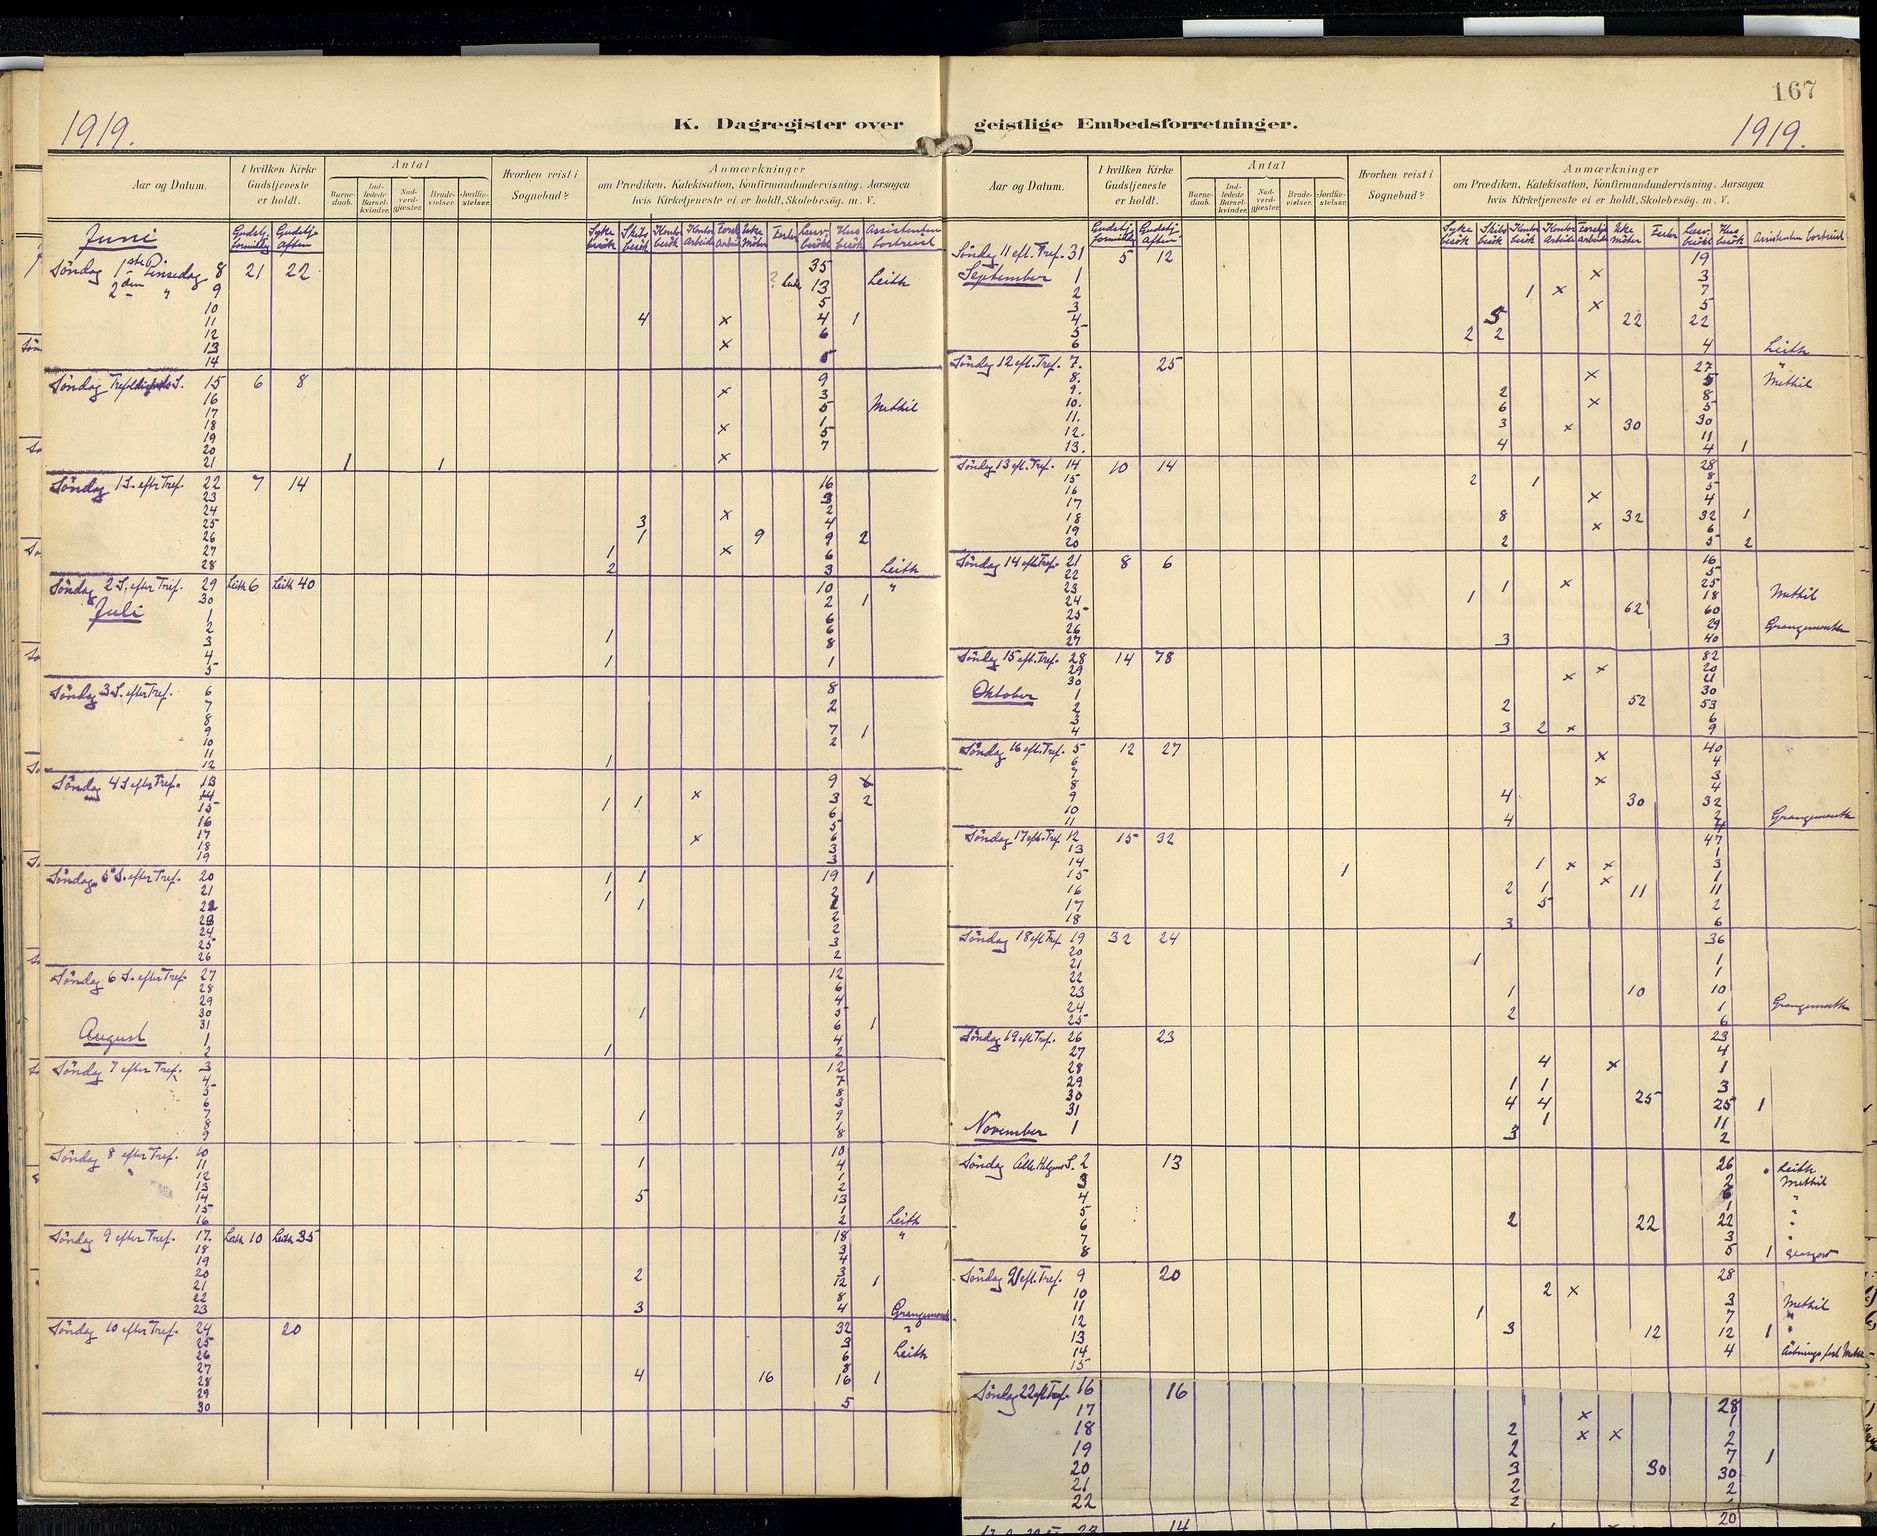 167
1919.
K. Dagregister over geistlige Embedsforretninger.
1919.
Aar og Datum.
I hvilken Kirke Gudstjeneste er holdt.
Antal
Barne-daab.
Ind-ledede Barsel-kvinder.
Nad-verd-gjæster.
Brude-vielser.
Jordfæ-stelser.
Hvorhen reist i Sognebud?
Anmærkninger
om Prædiken, Katekisation, Konfirmandundervisning. Aarsagen
hvis Kirketjeneste ei er holdt, Skolebesøg. m. V.
Juni
Gudstj. formiddag
Gudstj. aften
Syke besök
Skibs besök
Kontor besök
Kontor arbeide
Fester
Læsev. besök
Hus besök
Assistenten bortreist
Söndag 1ste Pinsedag 8 21 22 35
2den " 9 Leith 13 Leith
10 5
11 4 x 4 1
12 6
13 x
14 5
Söndag Trefoldigheds S. 15 6 8 9
16 x 3
17 5 Methil
18 1
19 x 5
20 7
21 1 1 x
Söndag 1 S. efter Tref. 22 7 14 16
23 3
24 2
25 3 x 4
26 1 9 9 2
27 1 x 6
28 2 3 Leith
Söndag 2 S. efter Tref. 29 Leith 6 Leith 40 10 "
30 2 1
Juli 1 6
2 6
3 1 8
4
5 1 1
Söndag 3 S. efter Tref. 6 8
7 2
8
9 7 1
10 2
11
12 1
Söndag 4 S. efter Tref. 13 9
14 x 3 2
15 1 1 6
16 5
17 x 6
18 3
19 3
Söndag 5 S. efter Tref. 20 1 1 19 1
21 1 2
22 1
23 2
24 2
25 3
26 2
Söndag 6 S. efter Tref. 27 12
28 6
29 4
30 1 5
31 6 1
August 1 4
2 1 2
Söndag 7 efter Tref. 3 12
4 7
5 8
6 3
7 1 9
8 1
9 8
Söndag 8 efter Tref. 10 10
11 1 4
12 1
13 2
14 5 13
15 1
16 2 Leith
Söndag 9 efter Tref. 17. Leith 10 Leith 35 18 "
18 3
19 4
20 2 3
21 12 1
22 8
23 3 4 Grangemouth
Söndag 10 efter Tref. 24 20 32 "
25 3
26 6 Leith
27 8
28 4 16 16 1
29
30 5
Aar og Datum.
I hvilken Kirke Gudstjeneste er holdt.
Antal
Barne-daab.
Ind-ledede Barsel-kvinder.
Nad-verd-gjæster.
Brude-vielser.
Jordfæ-stelser.
Hvorhen reist i Sognebud?
Anmærkninger
om Prædiken, Katekisation, Konfirmandundervisning. Aarsagen
hvis Kirketjeneste ei er holdt, Skolebesøg. m. V.
Gudstj. formiddag
Gudstj. aften
Syke besök
Skibs besök
Kontor besök
Kontor arbeide
Fester
Læsev. besök
Hus besök
Assistenten bortreist
Söndag 11 eft. Tref. 31 5 12 19
September 1 x 3
2 1 x 7
3 x 5
4 5 22 22
5 2 2
6 4 Leith
Söndag 12 eft. Tref. 7. 25 27 "
8. x 5 Methil
9. 2 8
10. 6 x 5
11. 3 x 30 30
12. 11
13. 4 4 1
Söndag 13 eft. Tref. 14 10 14 28
15 2 1 8
16 5
17 x 4
18 8 32 32 1
19 x 6
20 2 5 2
Söndag 14 eft. Tref. 21 8 6 16
22 5
23 1 x 25
24 1 18 Methil
25 62 60
26 29 Grangemouth
27 3 40
Söndag 15 eft. Tref. 28 14 78 82
29 x 20
30 x 21
Oktober 1 30
2 2 52 53
3 6
4 3 2 x 9
Söndag 16 eft. Tref. 5 12 27 40
6 x 4
7 3
8 x 4
9 4 30 32
10 2 Grangemouth
11 4
Söndag 17 eft. Tref. 12 15 32 47
13 1
14 1 x x 3
15 1 x 1
16 2 1 11 11
17 5 2
18 3 6
Söndag 18 eft Tref. 19 32 24 36
20 1
21 1
22 1
23 1 10 10
24 2 1 Grangemouth
25 6
Söndag 19 eft Tref. 26 23 23
27 4
28 4 x 1
29 1 1 3
30 4 4 25 25 1
31 1 11
November 1 3 2
Söndag Alle Helgens S. 2 13 26 Leith
3 2 Methil
4 6 "
5 1 "
6 2 22 22 "
7 3 "
8 5 1 Glasgow
Söndag 21 eft. Tref. 9 20 28
10 2 x
11 1 3 Methil
12 7 "
13 3 12 12 1 "
14 4
15
Söndag 22 eft Tref. 16 16 28
17 x 1
18 2 x x 2
19 2 7 1
20 3 30 30
21 2 2
22 2
14 20